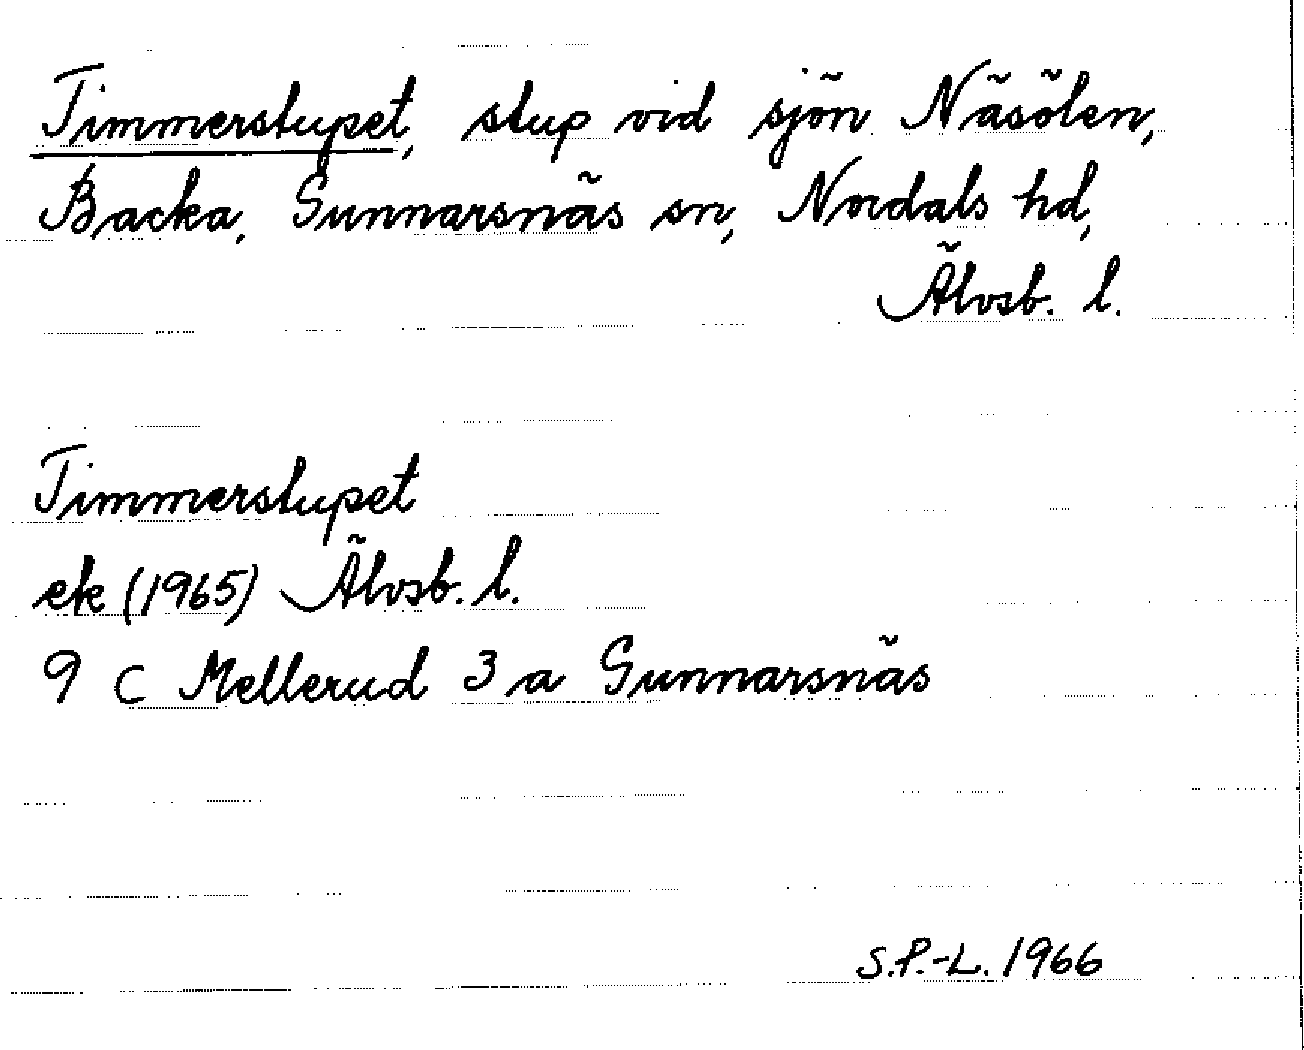 Timmerstupet, stup vid sjön Näsölen,
Backa, Gunnarsnäs sn, Nordals hd,
Älvsb. l.
Timmerstupet
ek (1965) Älvsb. l.
9 C Mellerud 3 a Gunnarsnäs
S.P.-L. 1966